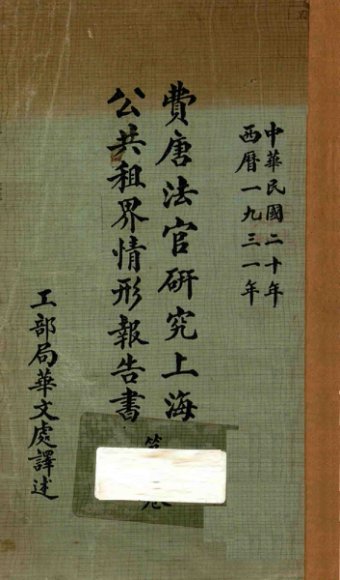 中華民國二十年
西曆一九三一年
費唐法官研究上海
公共租界情形報告書
卷
工部局華文處譯述